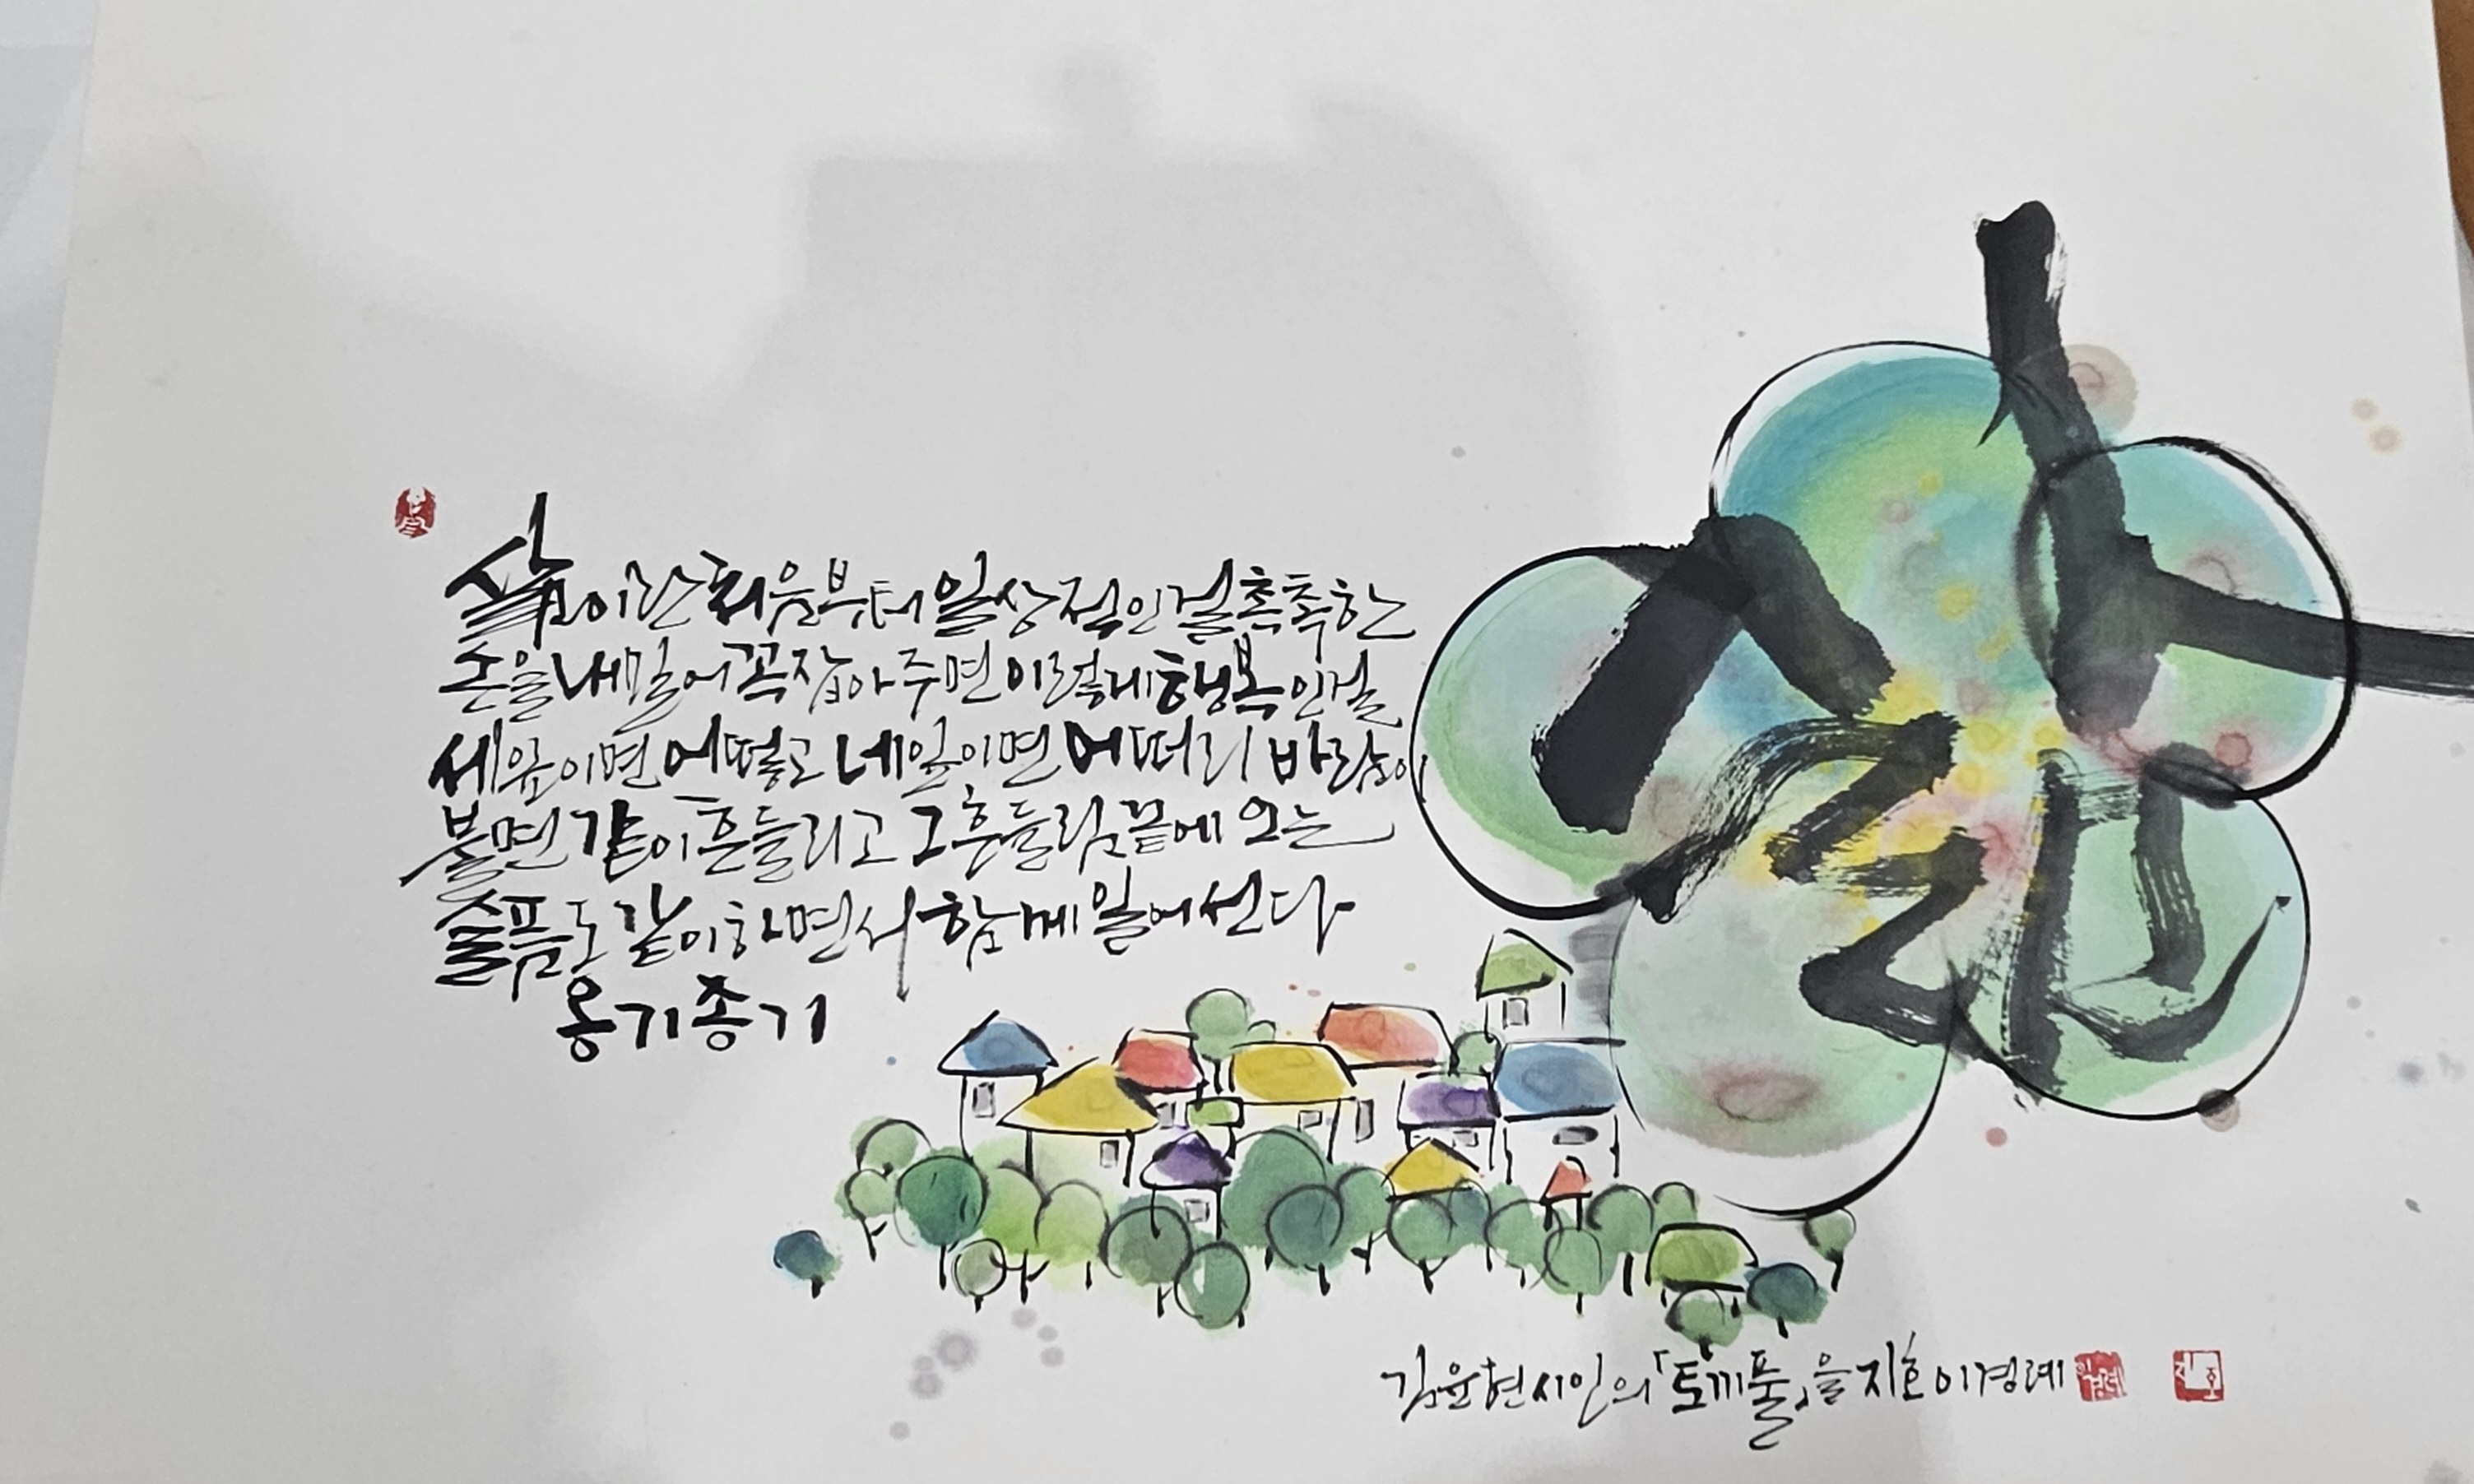 삶이란 처음부터 일상적인걸 촉촉한
손을 내밀어 꼭 잡아주면 이렇게 행복인걸
세잎이면 어떻고 네잎이면 어떠리 바람이
불면 같이 흔들리고 그 흔들림 끝에 오는
슬픔도 같이하면서 함께 일어선다
옹기종기
삶
김윤현시인의「토끼풀」을 지호 이경례
경례
지호